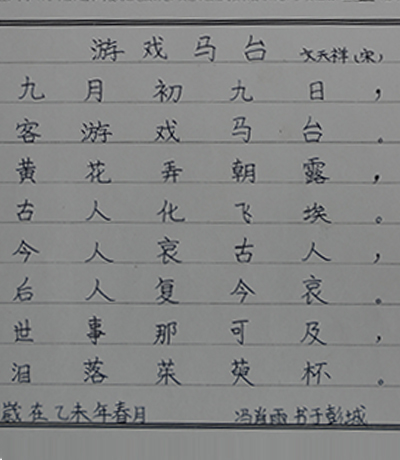 游戏马台 文天祥(宋)
九月初九日，
客游戏马台。
黄花弄朝露，
古人化飞埃。
今人哀古人，
后人复今哀。
世事那可及，
泪落茱萸杯。
歲在乙未年春月 冯肖雨书于彭城